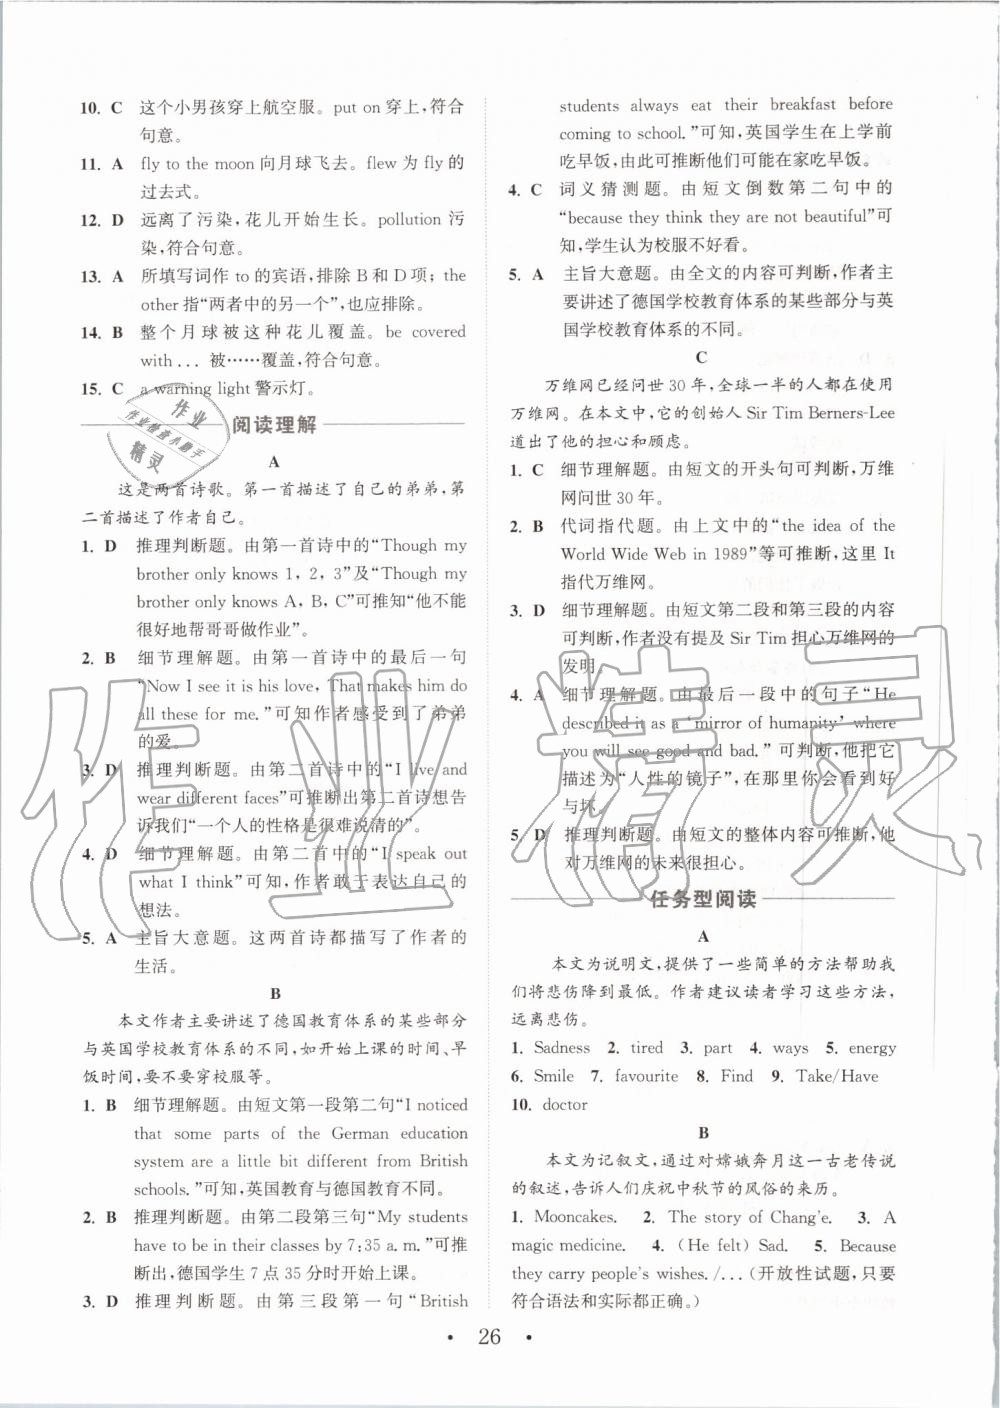 10. C 这个小男孩穿上航空服。put on 穿上,符合
句意。
11. A fly to the moon 向月球飞去。flew 为 fly 的
过去式。
12. D 远离了污染,花儿开始生长。pollution 污
染,符合句意。
13. A 所填写词作 to 的宾语,排除 B 和 D 项; the
other 指“两者中的另一个”,也应排除。
14. B 整个月球被这种花儿覆盖。be covered
with... 被……覆盖,符合句意。
15. C a warning light 警示灯。
阅读理解
A
这是两首诗歌。第一首描述了自己的弟弟,第
二首描述了作者自己。
1. D 推理判断题。由第一首诗中的“Though my
brother only knows 1, 2, 3”及“Though my
brother only knows A, B, C”可推知“他不能
很好地帮哥哥做作业”。
2. B 细节理解题。由第一首诗中的最后一句
“Now I see it is his love, That makes him do
all these for me.”可知作者感受到了弟弟
的爱。
3. D 推理判断题。由第二首诗中的“I live and
wear different faces”可推断出第二首诗想告
诉我们“一个人的性格是很难说清的”。
4. D 细节理解题。由第二首中的“I speak out
what I think”可知,作者敢于表达自己的
想法。
5. A 主旨大意题。这两首诗都描写了作者的
生活。
B
本文作者主要讲述了德国教育体系的某些部分
与英国学校教育体系的不同,如开始上课的时间、早
饭时间,要不要穿校服等。
1. B 细节理解题。由短文第一段第二句“I noticed
that some parts of the German education
system are a little bit different from British
schools.”可知,英国教育与德国教育不同。
2. B 推理判断题。由第二段第三句“My students
have to be in their classes by 7:35 a. m.”可推
断出,德国学生 7 点 35 分时开始上课。
3. D 推理判断题。由第三段第一句“British
students always eat their breakfast before
coming to school.”可知,英国学生在上学前
吃早饭,由此可推断他们可能在家吃早饭。
4. C 词义猜测题。由短文倒数第二句中的
“because they think they are not beautiful”可
知,学生认为校服不好看。
5. A 主旨大意题。由全文的内容可判断,作者主
要讲述了德国学校教育体系的某些部分与英
国学校教育体系的不同。
C
万维网已经问世 30 年,全球一半的人都在使用
万维网。在本文中,它的创始人 Sir Tim Berners-Lee
道出了他的担心和顾虑。
1. C 细节理解题。由短文的开头句可判断,万维
网问世 30 年。
2. B 代词指代题。由上文中的“the idea of the
World Wide Web in 1989”等可推断,这里 It
指代万维网。
3. D 细节理解题。由短文第二段和第三段的内容
可判断,作者没有提及 Sir Tim 担心万维网的
发明。
4. A 细节理解题。由最后一段中的句子“He
described it as a ‘mirror of humanity’ where
you will see good and bad.”可判断,他把它
描述为“人性的镜子”,在那里你会看到好
与坏。
5. D 推理判断题。由短文的整体内容可推断,他
对万维网的未来很担心。
任务型阅读
A
本文为说明文,提供了一些简单的方法帮助我
们将悲伤降到最低。作者建议读者学习这些方法,
远离悲伤。
1. Sadness 2. tired 3. part 4. ways 5. energy
6. Smile 7. favourite 8. Find 9. Take/Have
10. doctor
B
本文为记叙文,通过对嫦娥奔月这一古老传说
的叙述,告诉人们庆祝中秋节的风俗的来历。
1. Mooncakes. 2. The story of Chang'e. 3. A
magic medicine. 4. (He felt) Sad. 5. Because
they carry people's wishes. /...(开放性试题,只要
符合语法和实际都正确。)
• 26 •
作业精灵
作业
作业检查小助手
精灵